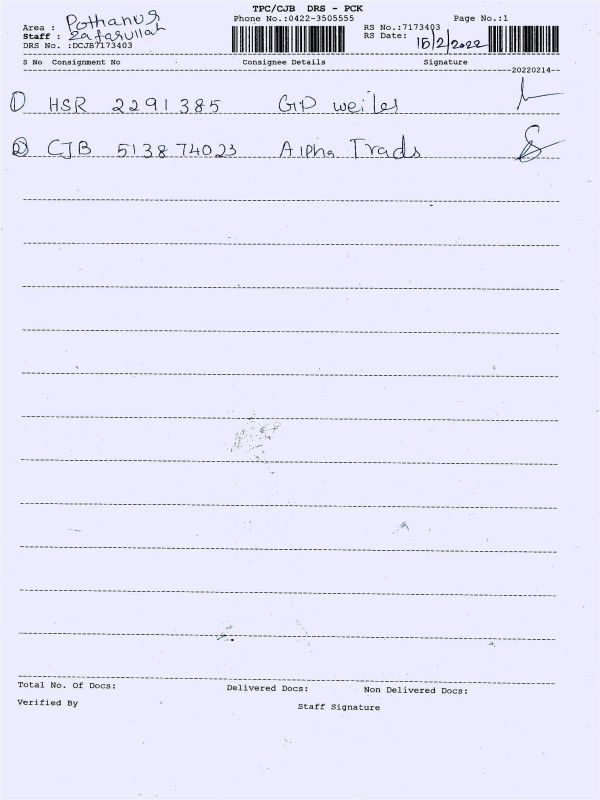 TPC/CJB DRS - PCK
Phone No.:0422-3505555 Page No.:1
Area : Pothanur
Staff : Zafarullah
DRS No. :DCJB7173403
RS No.:7173403
RS Date: 15/2/2022
S No Consignment No Consignee Details Signature
20220214
1 HSR 2291385 GD weiles
2 CJB 513874023 Alpha Trads
Total No. Of Docs: Delivered Docs: Non Delivered Docs:
Verified By Staff Signature